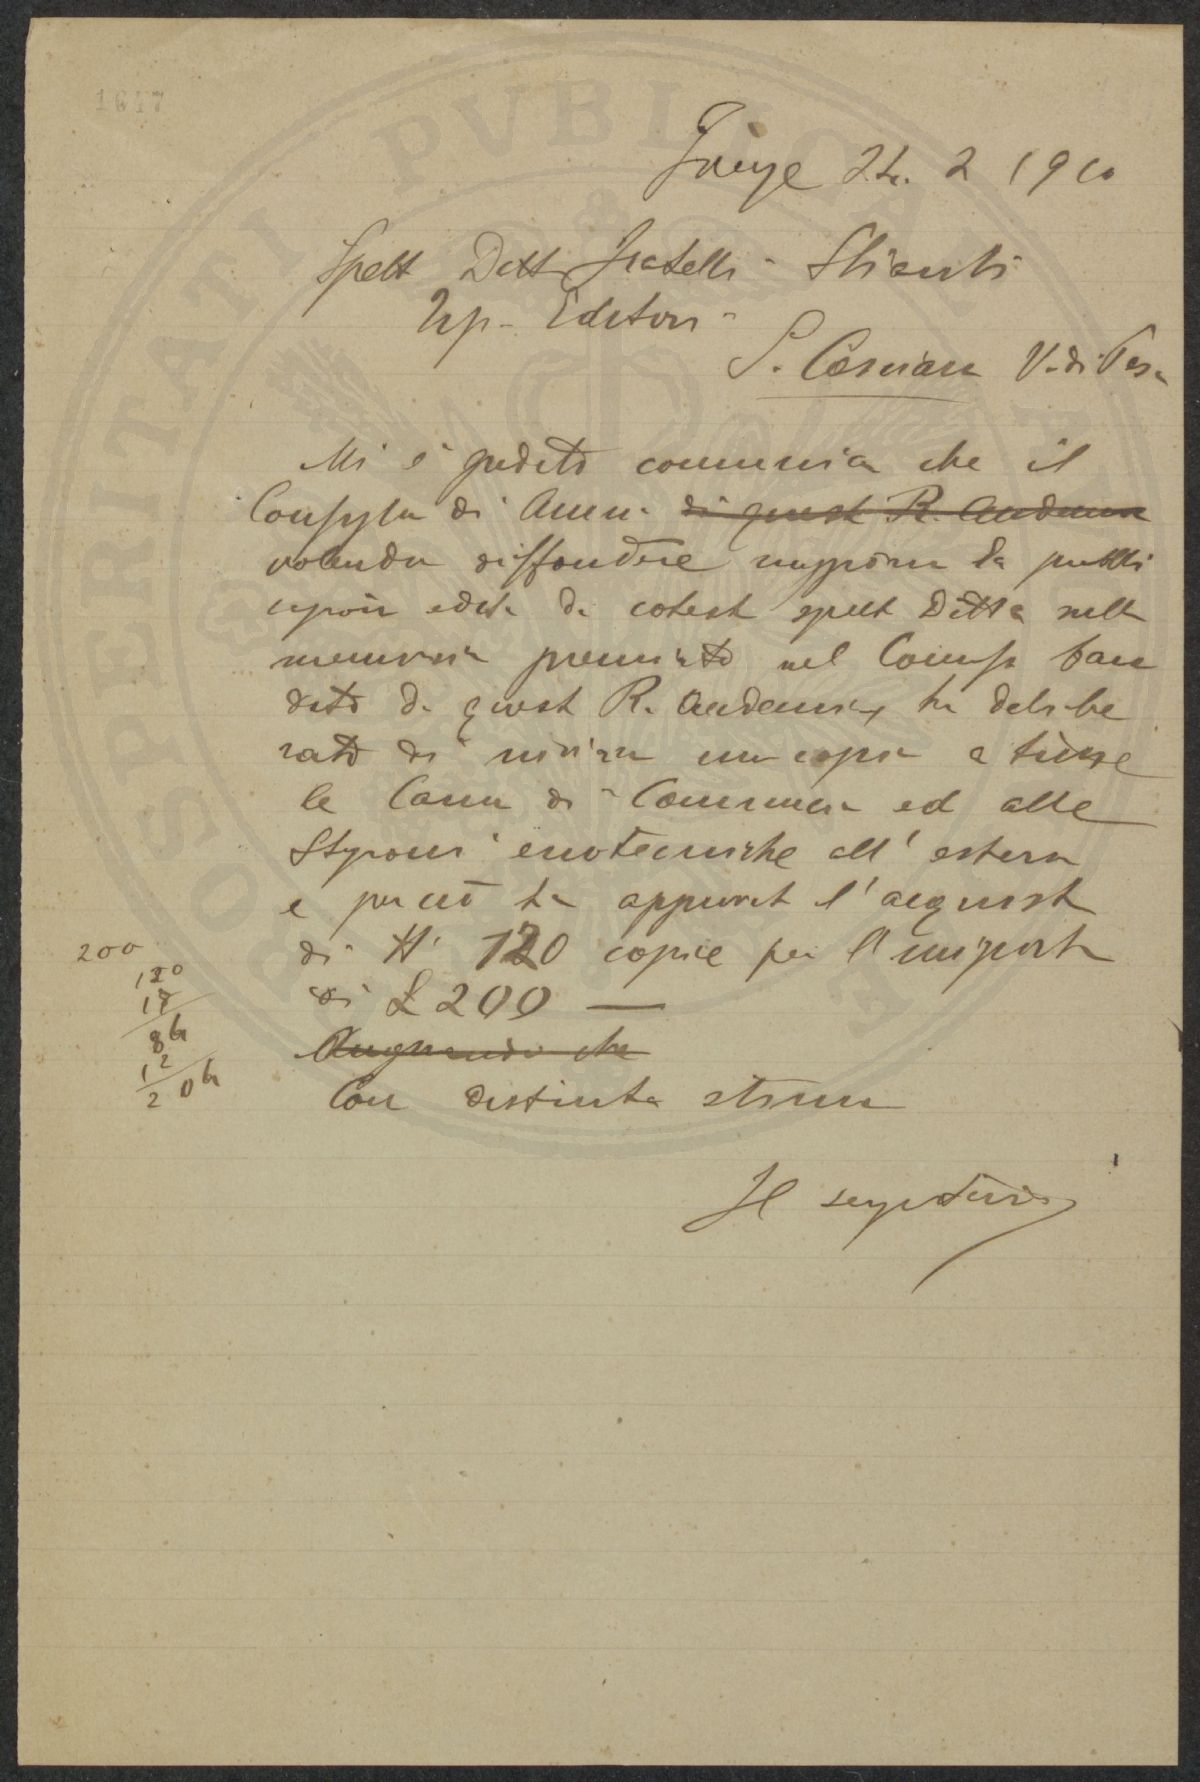 1617
Firenze 24. 2 1910
Spett Ditta Fratelli Stianti
Tip - Editori
S. Casciano V. di Pesa
Mi è gradito comunicar che il
Consiglio di Amm. di questa R. Accademia
volendo diffondere maggiorm la pubbli
cazion edita da cotesta spett Ditta sulla
memoria premiata nel Concorso ban
dito da questa R. Accademia, ha delibe
rato di inviare una copia a tutte
le Camere di Commercio ed alle
Stazioni enotecniche all' estero
e perciò ha approvato l'acquisto
di N° 120 copie per l'importo
di £ 200 —
Augurando che
Con distinta stima
Il segretario
200
120
17
84
12
204